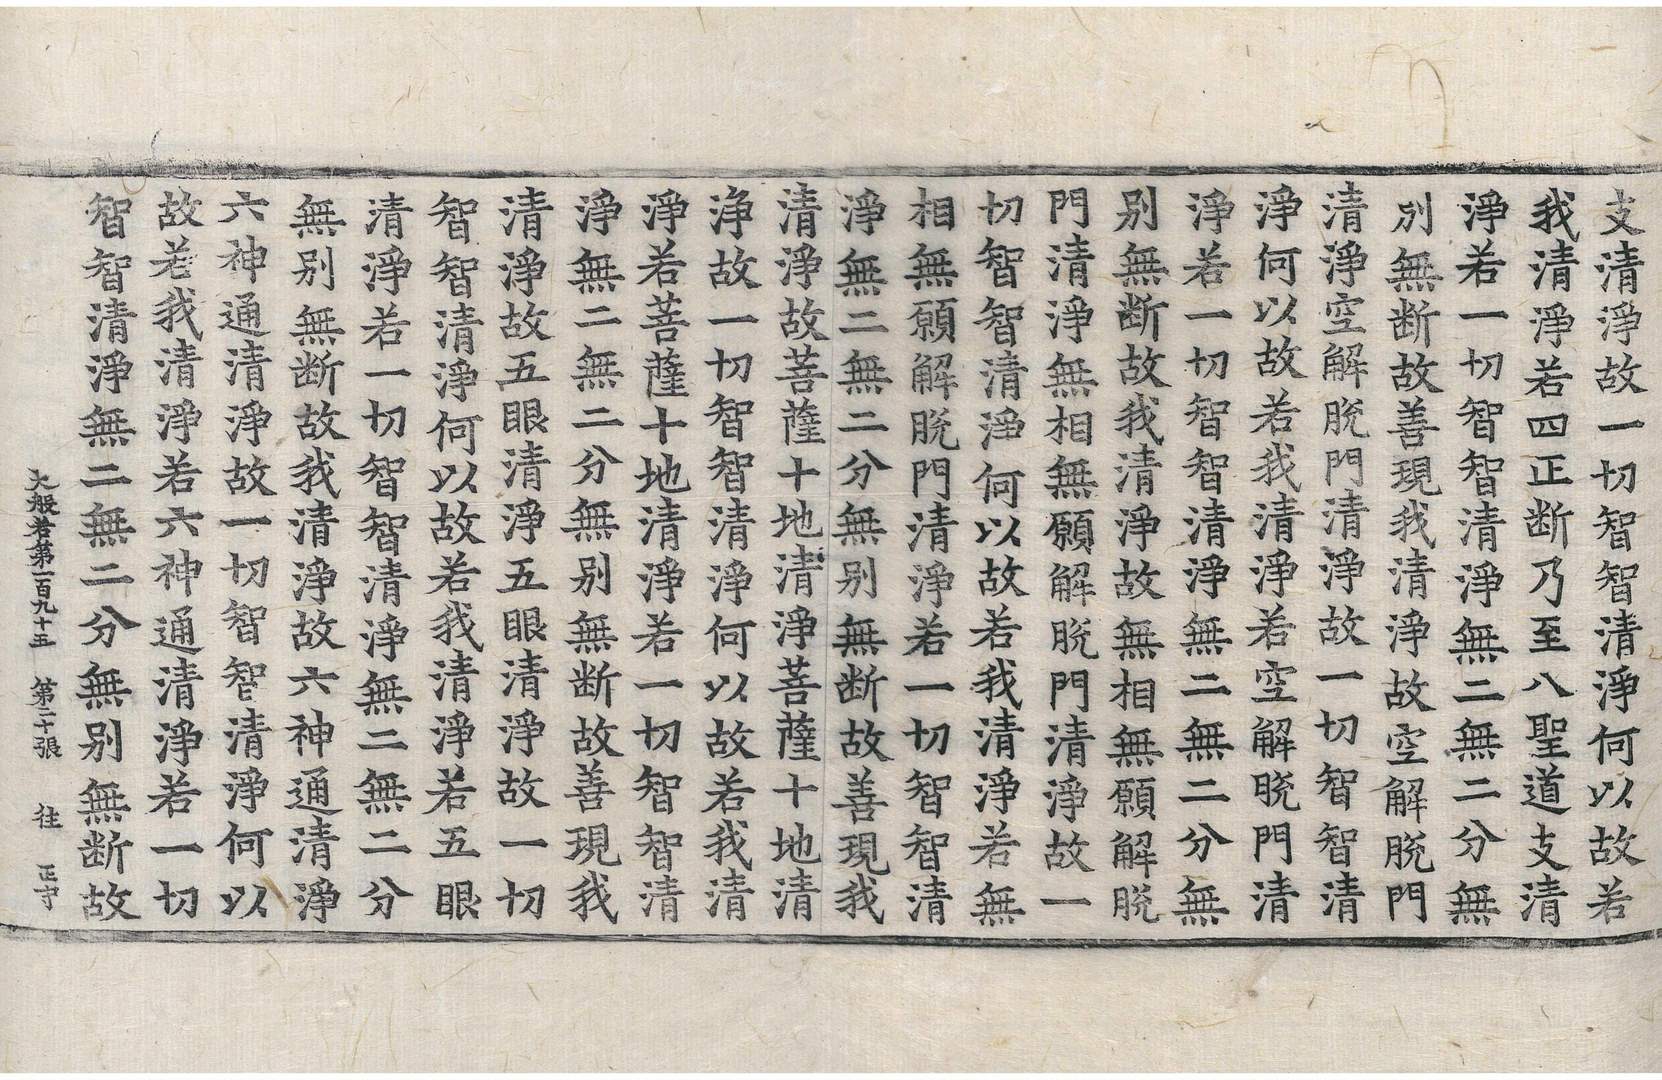 支清淨故一切智智清淨何以故若
我清淨若四正断乃至八聖道支清
淨若一切智智清淨無二無二分無
別無断故善現我清淨故空解脫門
清淨空解脫門清淨故一切智智清
淨何以故若我清淨若空解脫門清
淨若一切智智清淨無二無二分無
别無断故我清淨故無相無願解脫
門清淨無相無願解脫門清淨故一
切智智清淨何以故若我清淨若無
相無願解脫門清淨若一切智智清
淨無二無二分無别無断故善現我
清淨故菩薩十地清淨菩薩十地清
净故一切智智清淨何以故若我清
淨若菩薩十地清淨若一切智智清
淨無二無二分無别無断故善現我
清淨故五眼清淨五眼清淨故一切
智智清淨何以故若我清淨若五眼
清淨若一切智智清淨無二無二分
無别無断故我清淨故六神通清淨
六神通清淨故一切智智清淨何以
故若我清淨若六神通清淨若一切
智智清淨無二無二分無别無断故
大般若第一百九十五 第二十張 往 正守